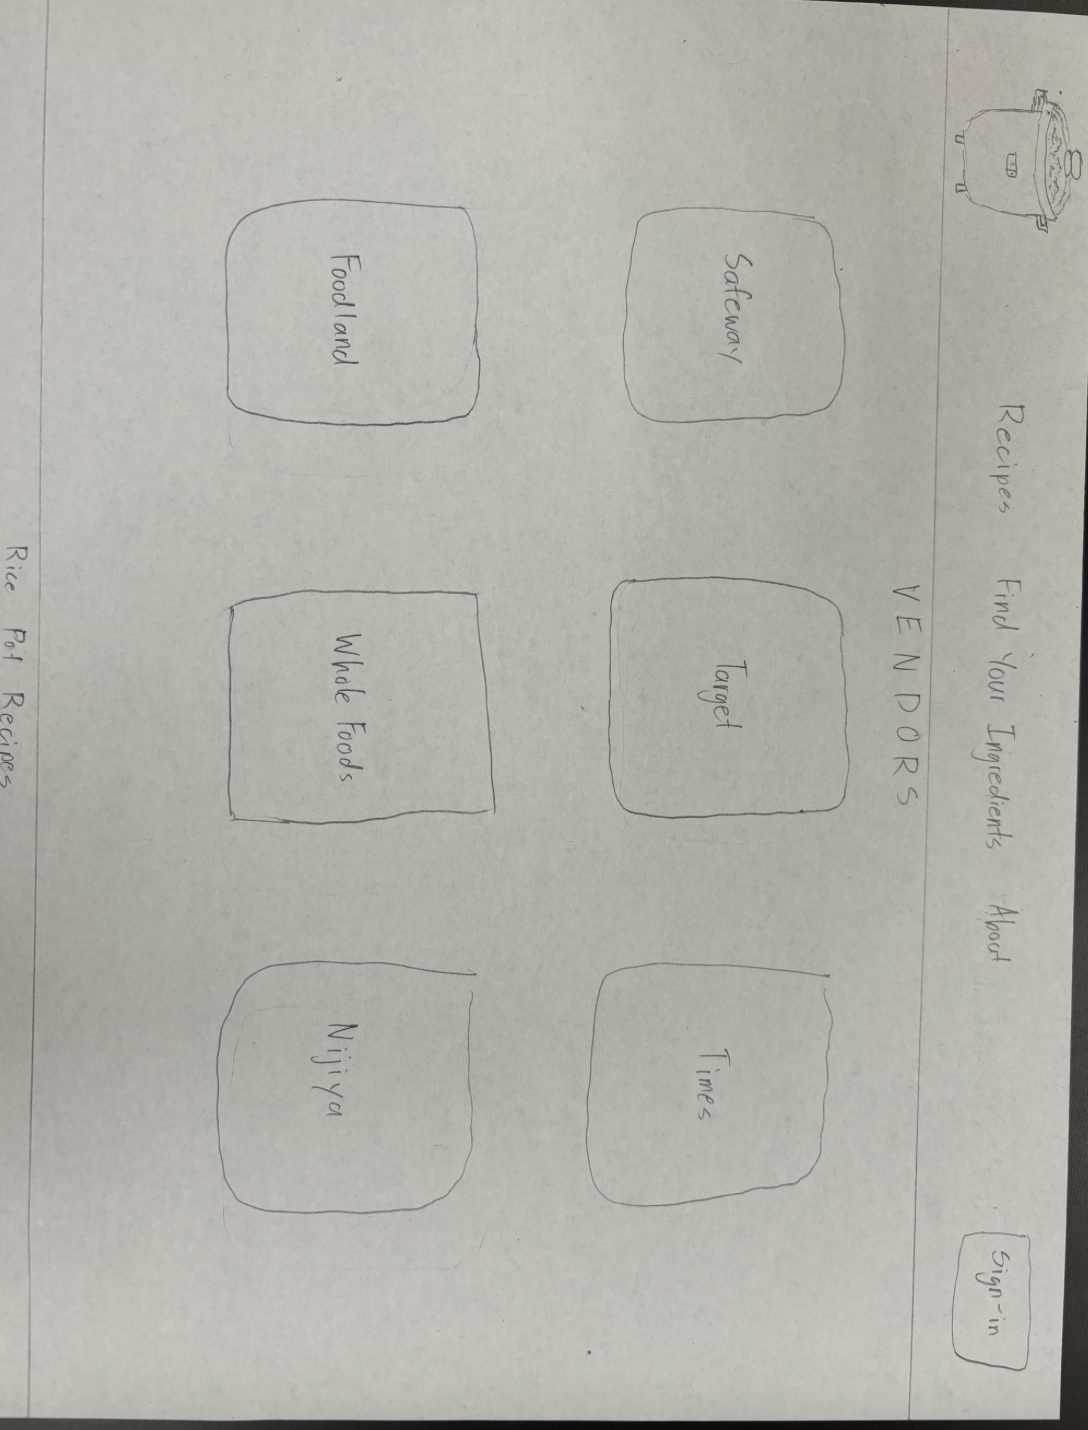 Recipes Find Your Ingredients About Sign-in
VENDORS
Safeway Target Times
Foodland Whole Foods Nijiya
Rice Pot Recipes